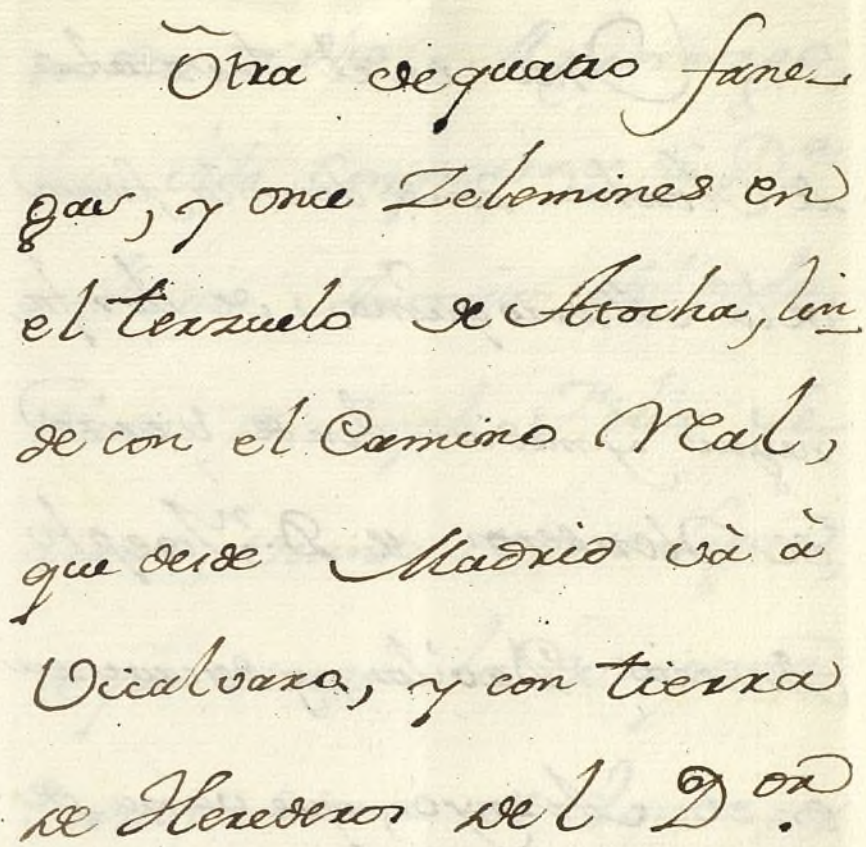 Otra de quatro fane-
gas, y once Zelemines en
el terruelo de Atocha, lin-
de con el Camino Real,
que desde Madrid và à
Vicalvaro, y con tierra
de Herederos del D.or